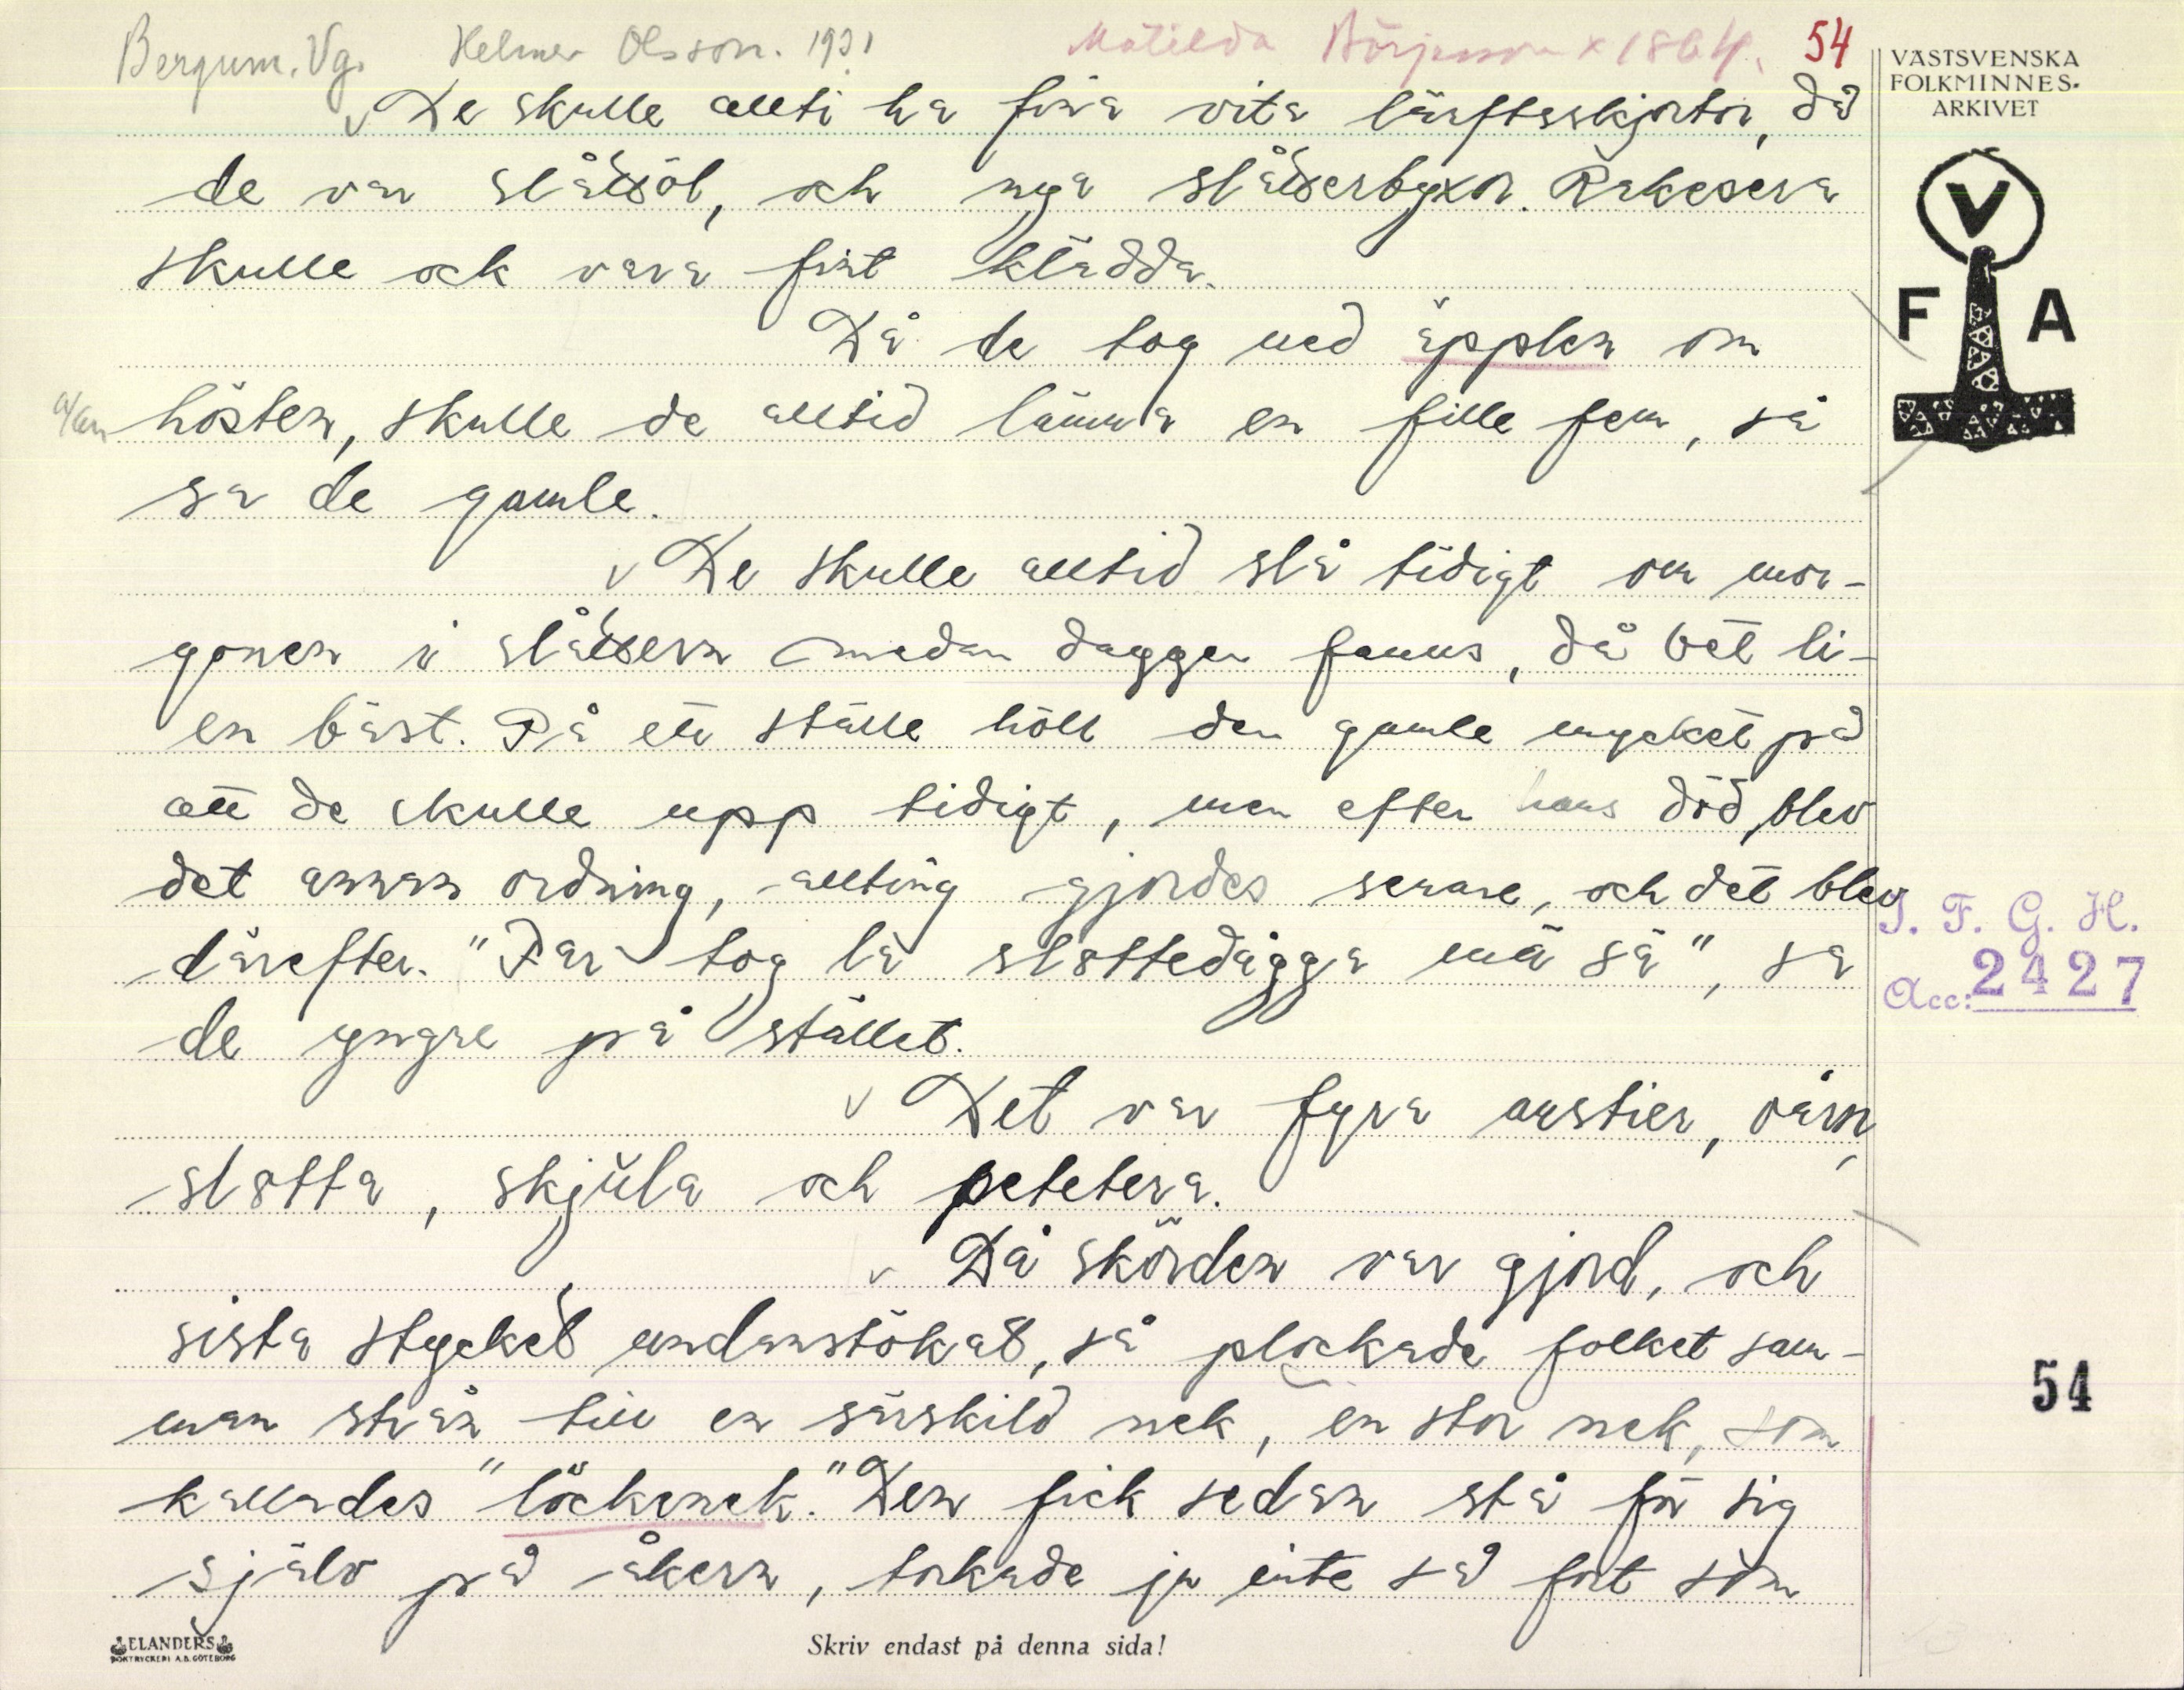 Bergum. Vg. Helmer Olsson. 1931 Matilda Börjesson x 1864. 54
VÄSTSVENSKA
FOLKMINNES-
ARKIVET
V
F A
De skulle allti ha fina vita lärftsskjortor, då
de var slåtteröl, och nya slåtterbyxor. Räkesera
skulle ock vara fint klädda.
Då de tog ned äpplen om
hösten, skulle de alltid lämna en fille fem, så
sa de gamle.
De skulle alltid slå tidigt om mor-
gonen i slåttern medan daggen fanns, då bet li-
en bäst. På ett ställe höll den gamle mycket på
att de skulle upp tidigt, men efter hans död blev
det annan ordning, allting gjordes senare, och det blev
därefter. "Far tog la slottedågga mä sä", sa
de yngre på stället.
Det var fyra anstier, vårn,
slotta, skjula och petetera.
Då skörden var gjord, och
sista stycket undanstökat, så plockade folket sam-
man strån till en särskild nek, en stor nek, som
kallades "löckenek." Den fick sedan stå för sig
själv på åkern, torkade ju inte så fort som
I. F. G. H.
Acc: 2427
54
ELANDERS
BOKTRYCKERI A.B. GÖTEBORG
Skriv endast på denna sida!